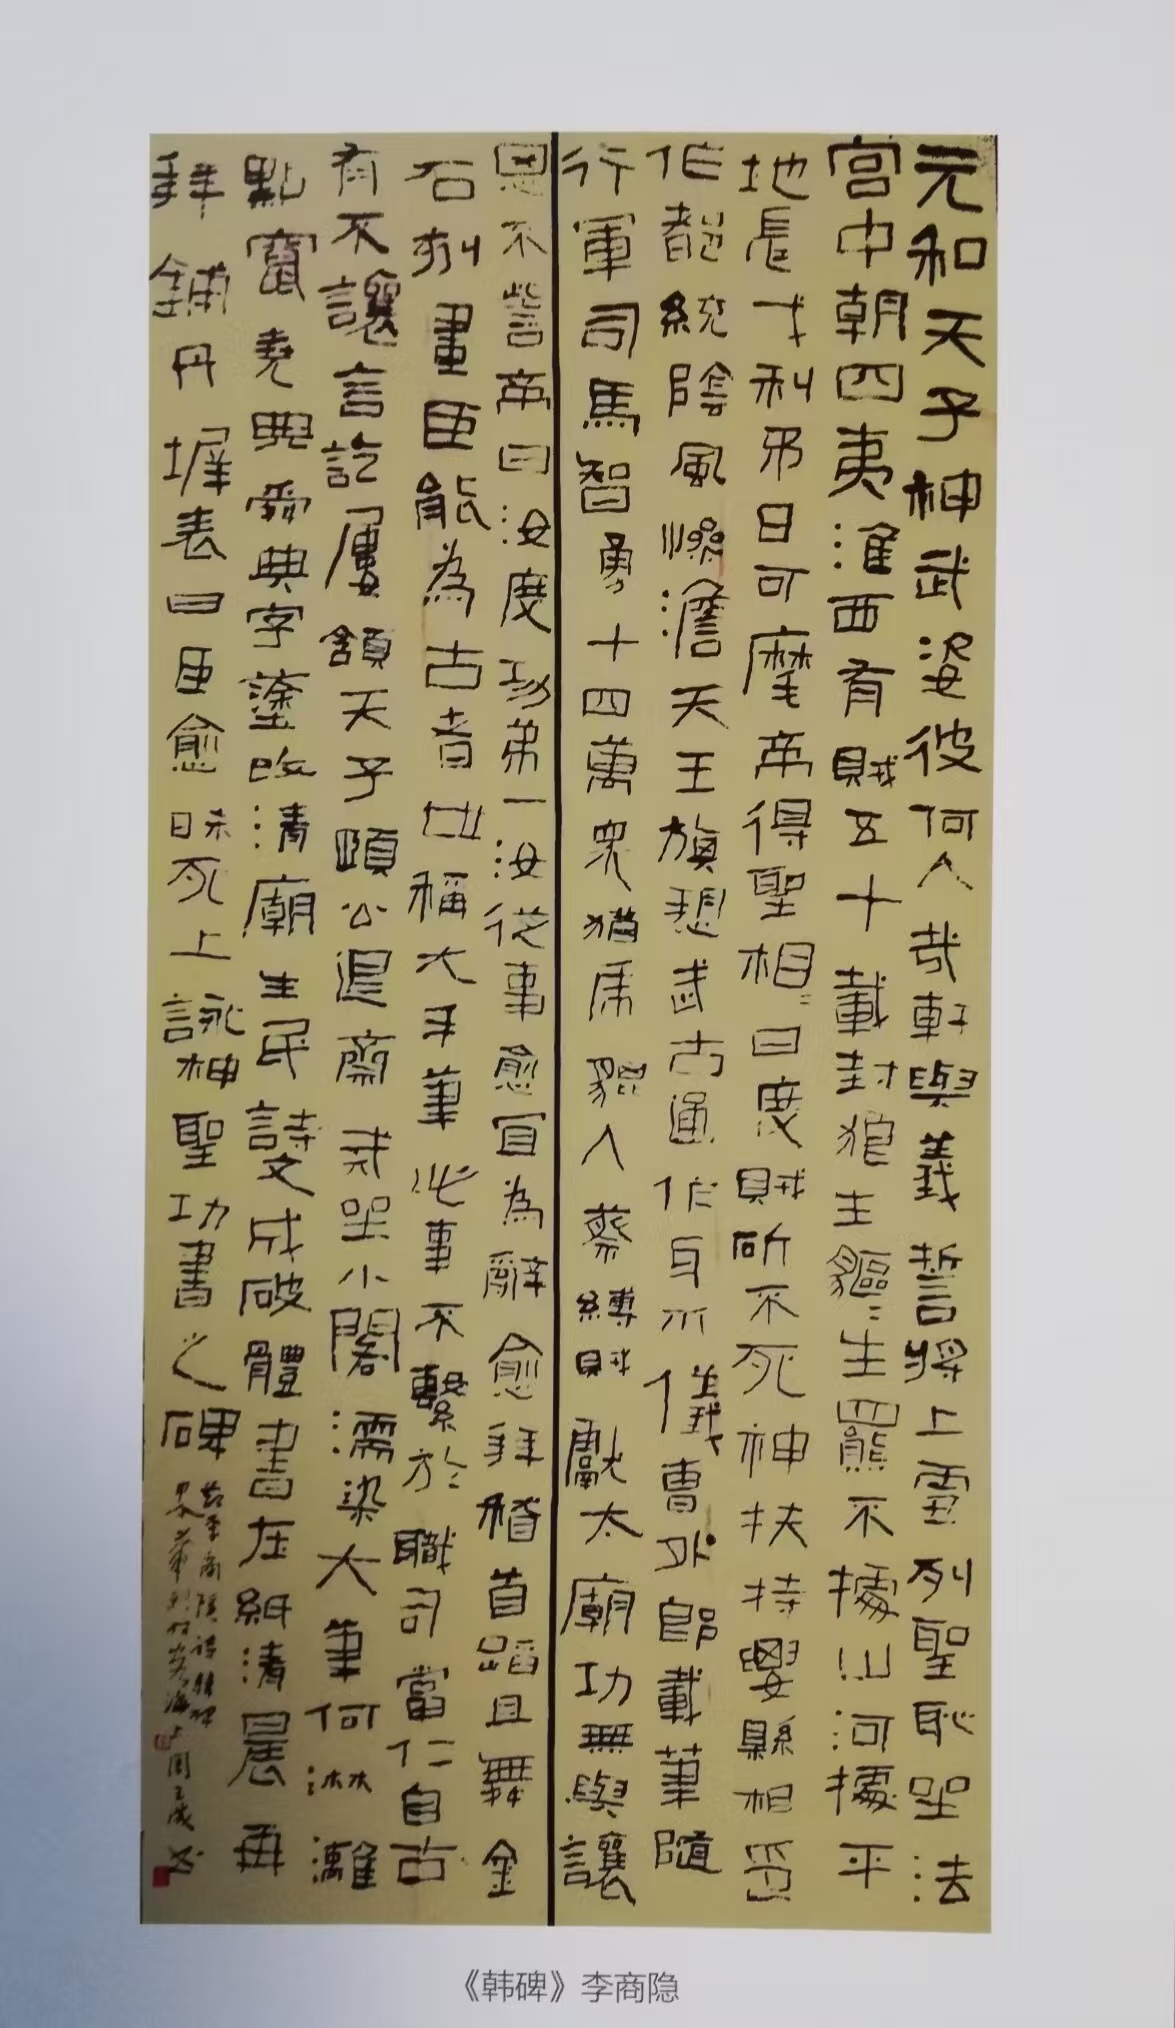 元和天子神武姿彼何人哉軒與義誓將上雪列聖恥坐法
宫中朝四夷淮西有賊五十載封狼生貙〻生羆不據山河據平
地長戈利矛日可摩帝得聖相〻曰度賊斫不死神扶持要縣相印
作都統陰風慘澹天王旗愬武古通作牙爪儀曹外郎載筆隨
行軍司馬智勇十四萬衆猶虎貔入蔡縛賊獻太廟功無與讓
恩不訾帝曰汝度功第一汝從事愈宜為辭愈拜稽首蹈且舞金
石刻畫臣能為古者世稱大手筆此事不繫於職司當仁自古
有不讓言訖屢頷天子頤公退齋戒坐小閣濡染大筆何淋灕
點竄堯典舜典字塗改清廟生民詩文成破體書在紙清晨再
拜鋪丹墀表曰臣愈昧死上詠神聖功書之碑
李商隱詩韓碑
《韩碑》李商隐